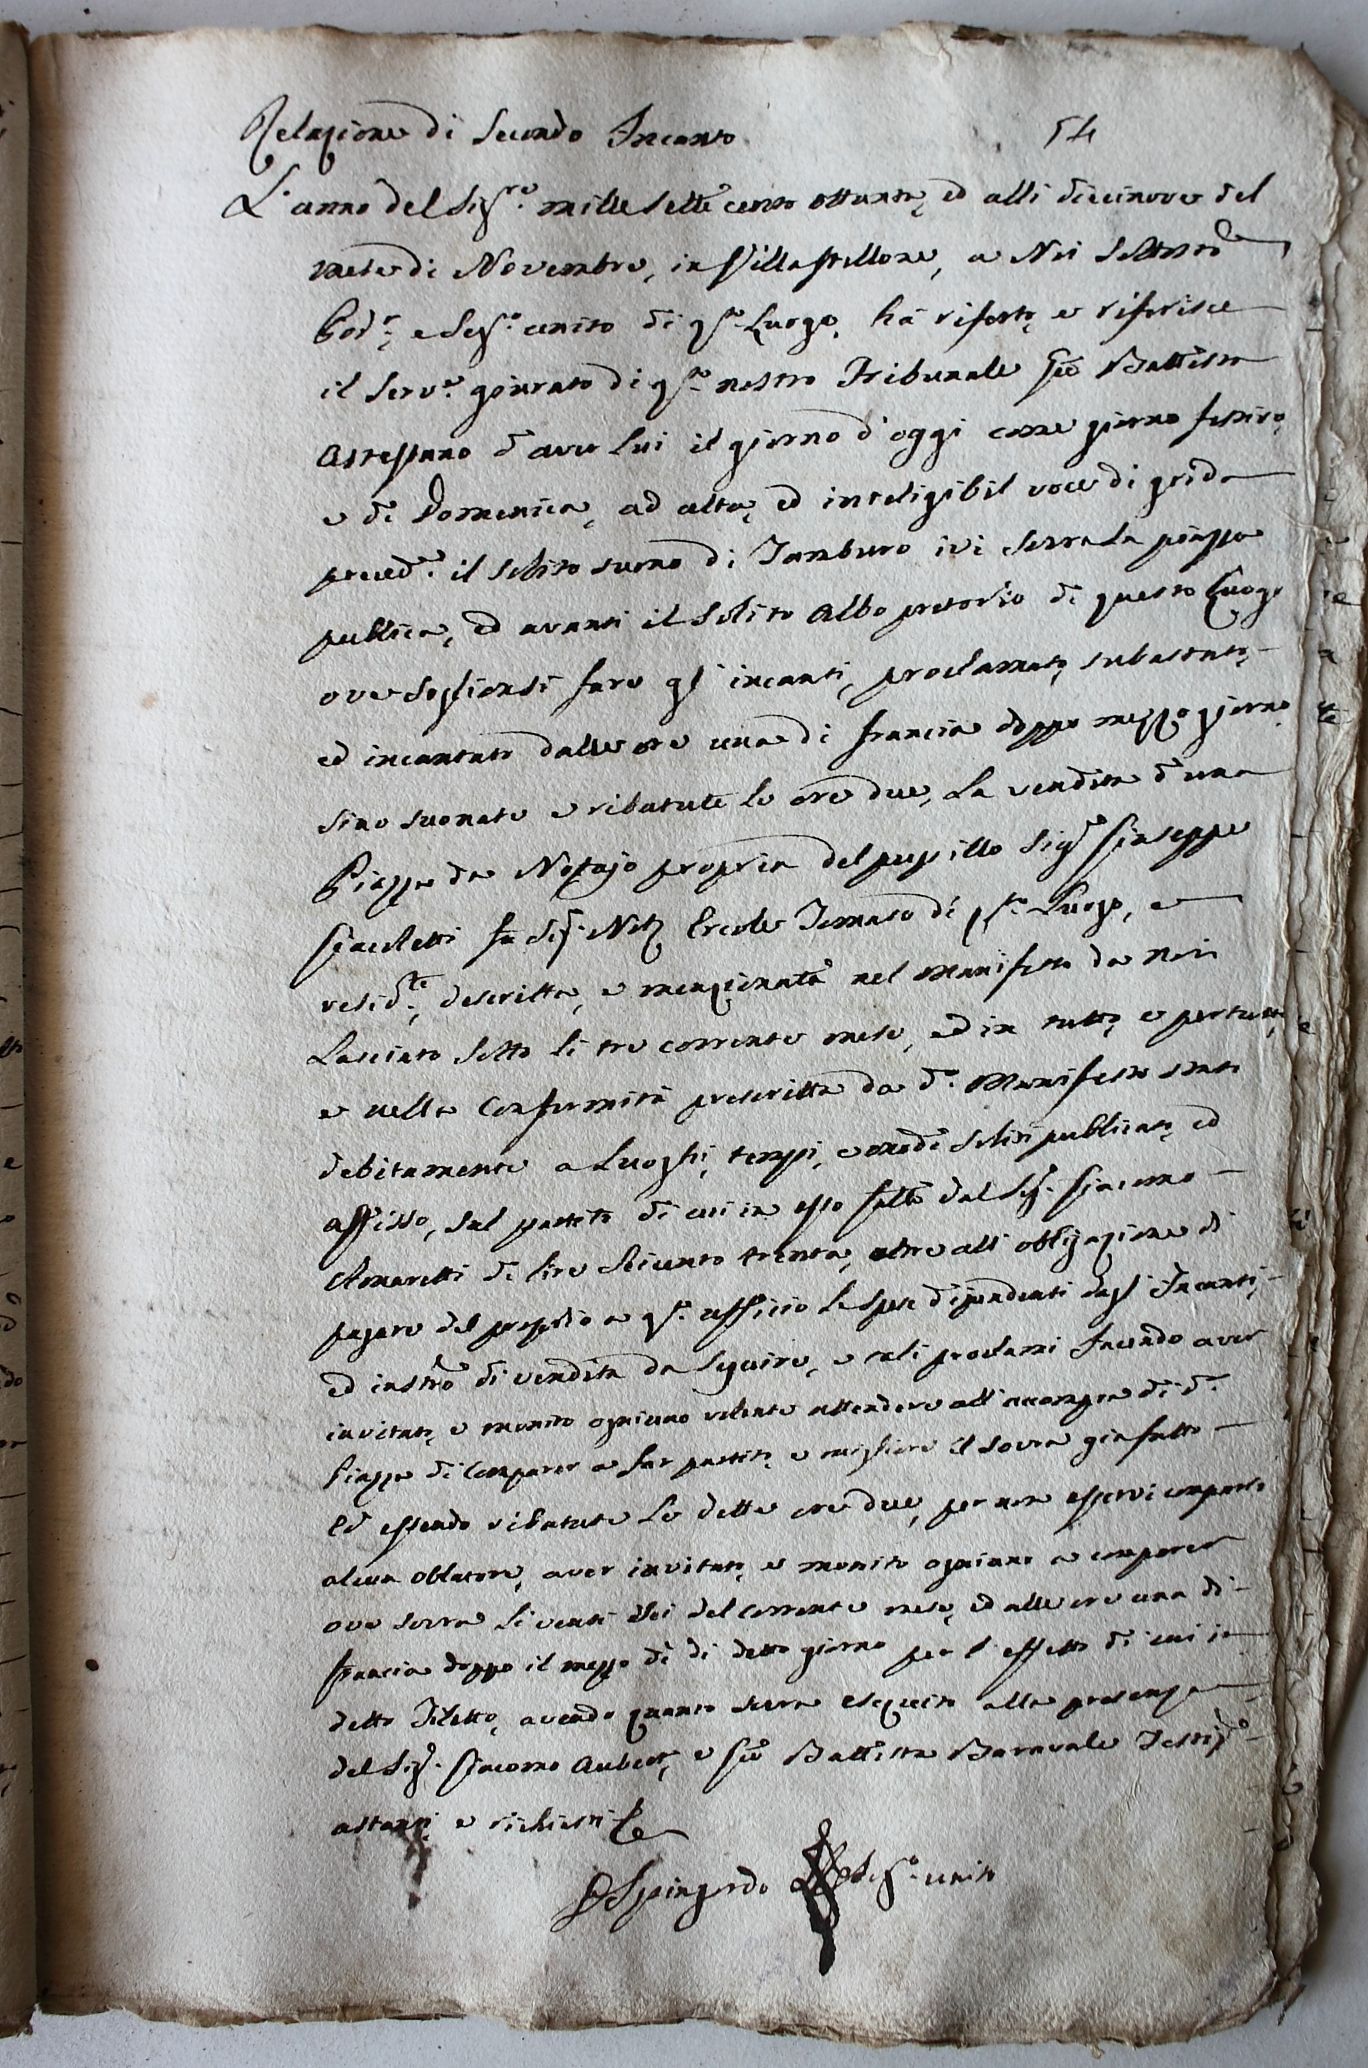 Relazione di Secondo Incanto
54
L'anno del Sig.re mille sette cento ottanta, ed alli diecinove del
mese di Novembre, in Villastellone, a Noi sottos.to
Pod.e, e Seg.o unito di q.sto Luogo, hà riferto, e riferisce
il Serv.e giurato di q.sto nostro Tribunale Gio Battista
Astessano d'aver lui il giorno d'oggi come giorno festivo,
e di Domenica, ad alta, ed inteligibil voce di grida
preced.e il solito suono di Tamburo ivi sovra la piazza
publica, ed avanti il solito Albo pretorio di questo Luogo
ove soglionsi fare gl'incanti, proclamato, subastato,
ed incantato dalle ore una di francia doppo mezzo giorno
sino suonate e ribatute le ore due, La vendita d'una
Piazza da Notajo propria del pupillo Sig.r Giuseppe
Giacoletti fu Sig.r Not.o Ercole Tomaso di q.sto Luogo, e
resid.te, descritta, e menzionata nel Manifesto da Noi
Lasciato sotto li tre corrente mese, ed in tutto, e per tutto
e nella Conformità prescritta da d.o Manifesto stato
debitamente a Luoghi, tempi, e modi soliti publicato, ed
affisso, sul partito di cui in esso fatto dal Sig.r Giacomo
Amaretti di lire Seicento trenta, oltre all'obligazione di
pagare del proprio a q.sto ufficio le spese dipendenti dagl'Incanti,
ed instro di vendita da seguire, e tali proclami facendo aver
invitato, e monito ogniuno volente attendere all'accompra di d.a
Piazza di Comparer a far partito, e migliore il sovra già fatto
Ed essendo ribatute le dette ore due, per non esservi comparso
alcun oblatore, aver invitato, e monito ogniuno a comparer
ove sovra li venti sei del corrente mese, ed alle ore una di
francia doppo il mezzo dì di detto giorno per l'effetto di cui in
detto Tiletto, avendo quanto sovra eseguito alla presenza
del Sig.r Giacomo Aubert, e Gio Battista Baravale Testij
astanti, e richiesti
Spingardo Seg.o unito